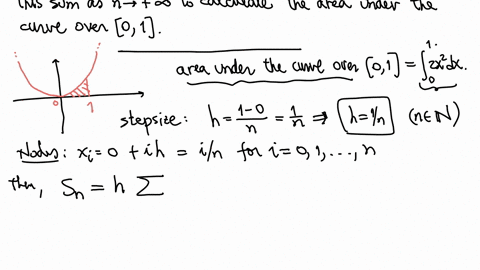 this sum as n → +∞ to calculate the area under the
curve over [0,1].
area under the curve over [0,1] = ∫₀¹ 2x²dx.
0 1
stepsize: h = (1-0)/n = 1/n ⇒ h = 1/n (n∈ℕ)
Nodes: xᵢ = 0 + ih = i/n for i = 0, 1, ..., n
then, Sₙ = h ∑